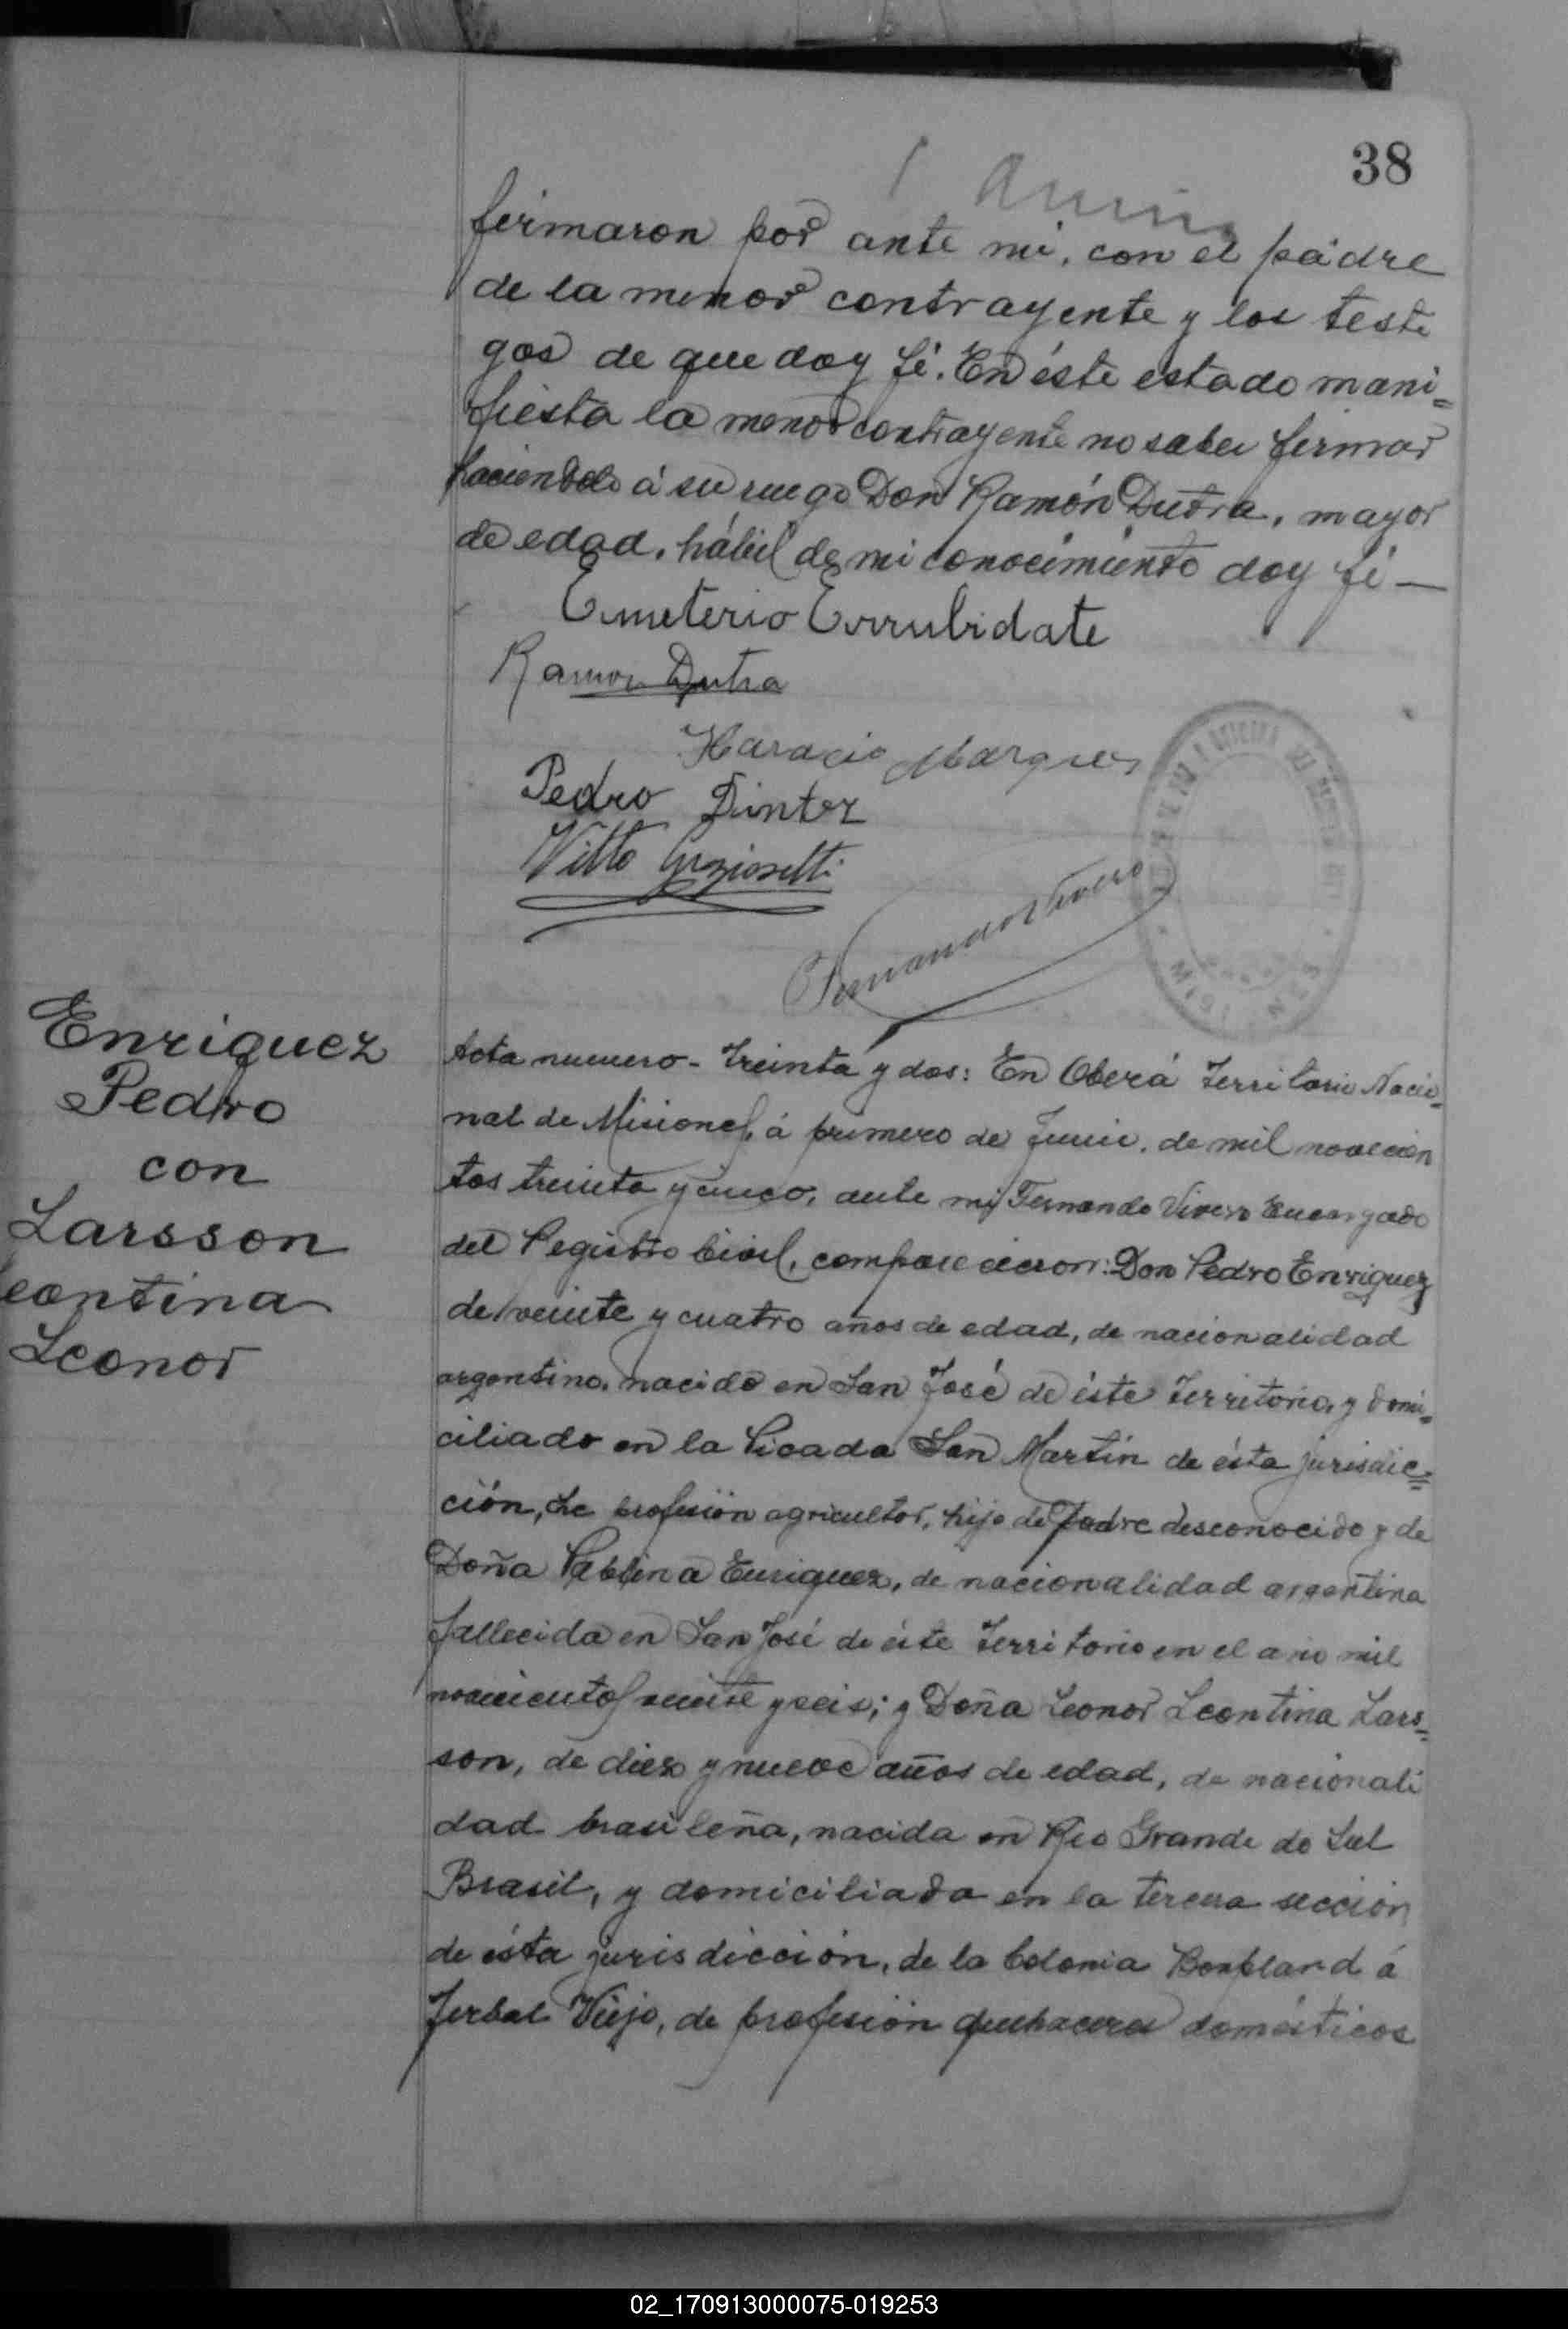 38
firmaron por ante mi, con el padre
de la menor contrayente y los testi
gos de que doy fé. En éste estado mani=
fiesta la menor contrayente no saber firmar
haciendolo á su ruego Don Ramón Dutra, mayor
de edad, hábil de mi conocimiento doy fé —
Emeterio Errubidate
Ramon Dutra
Haracio Marques
Pedro Dinter
Fernando Vivero
Enriquez
Pedro
con
Larsson
Leontina
Leonor
Acta numero - treinta y dos: En Oberá Territorio Nacio=
nal de Misiones, á primero de Junio, de mil novecien
tos treinta y cinco, ante mi, Fernando Vivero Encargado
del Registro Civil, comparecieron: Don Pedro Enriquez
de veinte y cuatro años de edad, de nacionalidad
argentino, nacido en San José de éste Territorio, y domi=
ciliado en la Picada San Martín de ésta jurisdic=
ción, de profesión agricultor, hijo de Padre desconocido y de
Doña Pablina Enriquez, de nacionalidad argentina
fallecida en San José de éste Territorio en el año mil
novecientos veinte y seis; y Doña Leonor Leontina Lars=
son, de diez y nueve años de edad, de nacionali
dad brasileña, nacida en Rio Grande do Sul
Brasil, y domiciliada en la tercera sección
de ésta jurisdicción, de la Colonia Bonpland á
Yerbal Viejo, de profesión quehaceres domésticos
02_170913000075-019253